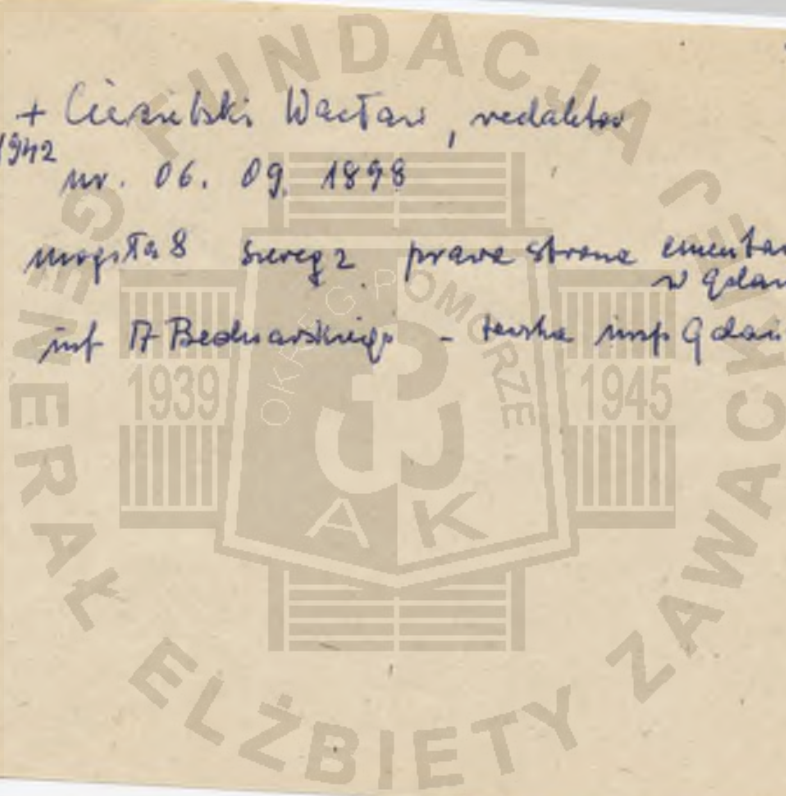 + Ciesielski Wacław, redaktor
1942
ur. 06. 09. 1898
mogiła 8 szereg 2 prawa strona cmentar
w Gdań
inf B Bednarskiego - teczka insp Gdań
FUNDACJA GENERAŁ ELŻBIETY ZAWACKIEJ
OKRĘG POMORZE
1939
1945
AK